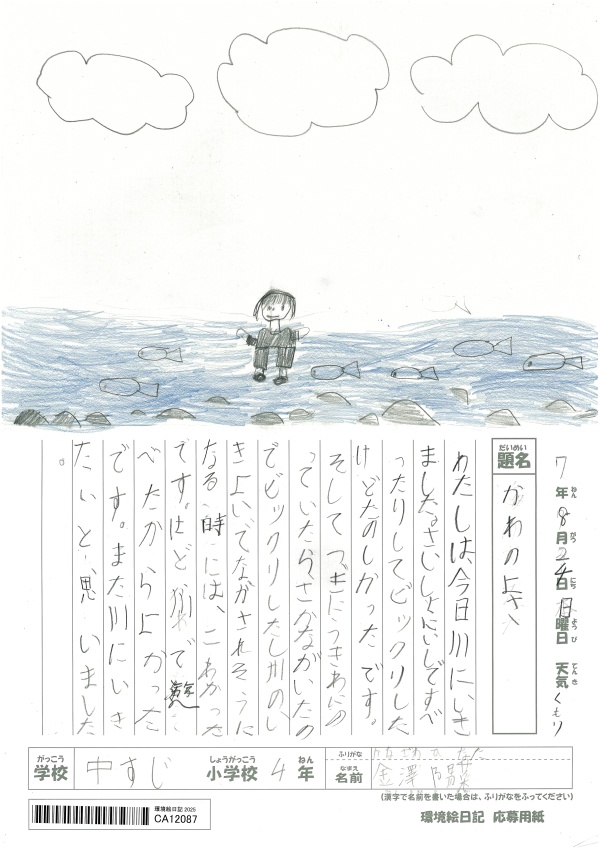 7年8月24日日曜日 天気くもり
ねん がつ にち ようび てんき
だいめい
題名
かわのよさ
わたしは、今日川にいき
ました。さいしょにいしですべ
ったりしてビックリした
けどたのしかったです。
そしてつぎにうきわにの
っていたら、さかながいたの
でビックリしたし川のい
きよいでながされそうに
なる時には、こわかった
です。けど
べたからよかった
です。また川にいき
たいと、思いました
。
がっこう
学校 中すじ 小学校 4年
しょうがっこう ねん
ふりがな
なまえ
名前 金澤
(漢字で名前を書いた場合は、ふりがなをふってください)
環境絵日記 2025
CA12087
環境絵日記 応募用紙